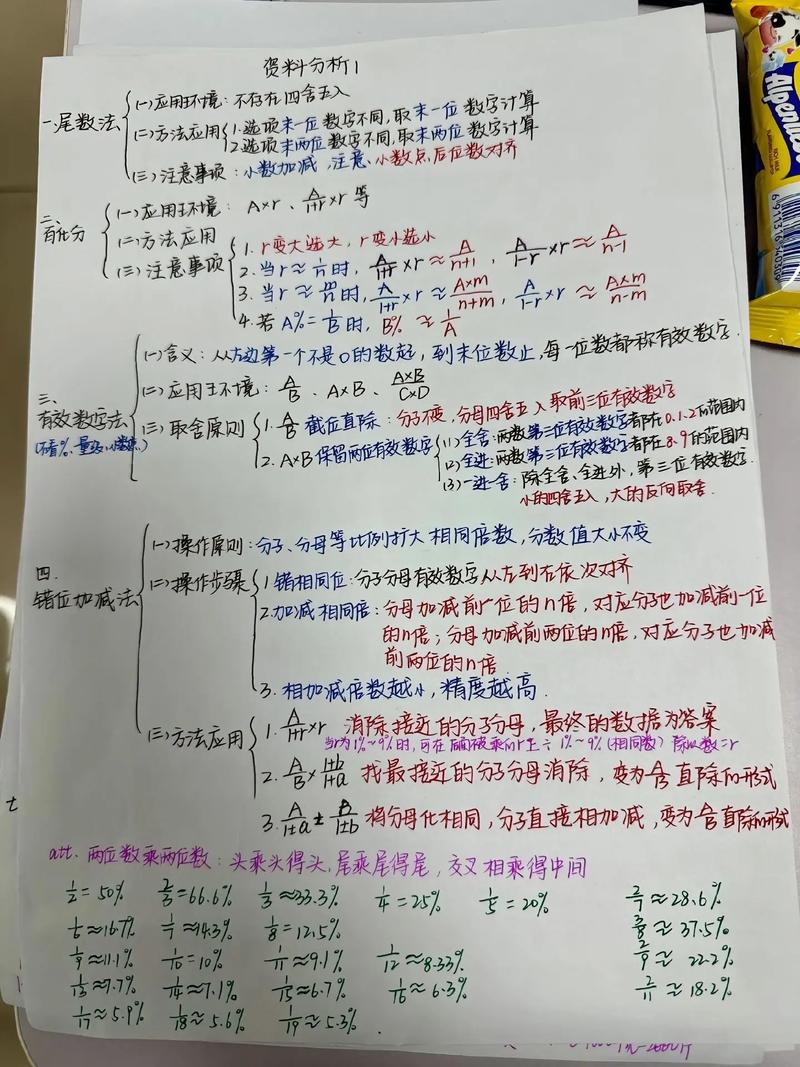 资料分析1
一.尾数法
(一)应用环境：不存在四舍五入
(二)方法应用
1.选项末一位数字不同,取末一位数字计算
2.选项末两位数字不同,取末两位数字计算
(三)注意事项：小数加减,注意.小数点后位数对齐
二、百化分
(一)应用环境： A×r、A/(1+r)×r 等
(二)方法应用
(三)注意事项
1. r变大选大，r变小选小
2. 当r≈1/n时, A/(1+r)×r≈A/(n+1), A/(1-r)×r≈A/(n-1)
3. 当r≈m/n时, A/(1+r)×r≈(A×m)/(n+m), A/(1-r)×r≈(A×m)/(n-m)
4. 若A%=1/B时, B%≈1/A
三、有效数字法
(不看%、量级、小数点)
(一)含义：从左边第一个不是0的数起，到末位数止,每一位数都称有效数字.
(二)应用环境： A/B、A×B、(A×B)/(C×D)
(三)取舍原则
1. A/B 截位直除：分子不变,分母四舍五入取前三位有效数字
2. A×B保留两位有效数字
(1)全舍:两数第三位有效数字都在0.1.2的范围内
(2)全进:两数第三位有效数字都在8.9的范围内
(3)一进一舍：除全舍、全进外，第三位有效数字
小的四舍五入,大的反向取舍.
四.错位加减法
(一)操作原则:分子、分母等比例扩大相同倍数,分数值大小不变
(二)操作步骤
1.错相同位：分子分母有效数字从左到右依次对齐
2.加减相同倍：分母加减前一位的n倍，对应分子也加减前一位
的n倍；分母加减前两位的n倍，对应分子也加减
前两位的n倍
3. 相加减倍数越小,精度越高.
(三)方法应用
1. A/(1+r)×r 消除接近的分子分母，最终的数据为答案
当r为1%~9%时,可在
2. A/B×(1+b)/(1+a) 找最接近的分子分母消除，变为A/B直除的形式
3. A/(1±a)±B/(1±b) 将分母化相同,分子直接相加减,变为A/B直除的形式
att. 两位数乘两位数：头乘头得头,尾乘尾得尾，交叉相乘得中间
1/2=50% 2/3=66.6% 1/3≈33.3% 1/4=25% 1/5=20% 2/7≈28.6%
1/6≈16.7% 1/7≈14.3% 1/8=12.5% 3/8≈37.5%
1/9≈11.1% 1/10=10% 1/11≈9.1% 1/12≈8.33% 2/9≈22.2%
1/13≈7.7% 1/14≈7.1% 1/15≈6.7% 1/16≈6.3% 2/11≈18.2%
1/17≈5.9% 1/18≈5.6% 1/19≈5.3%
t
Alpenliebe